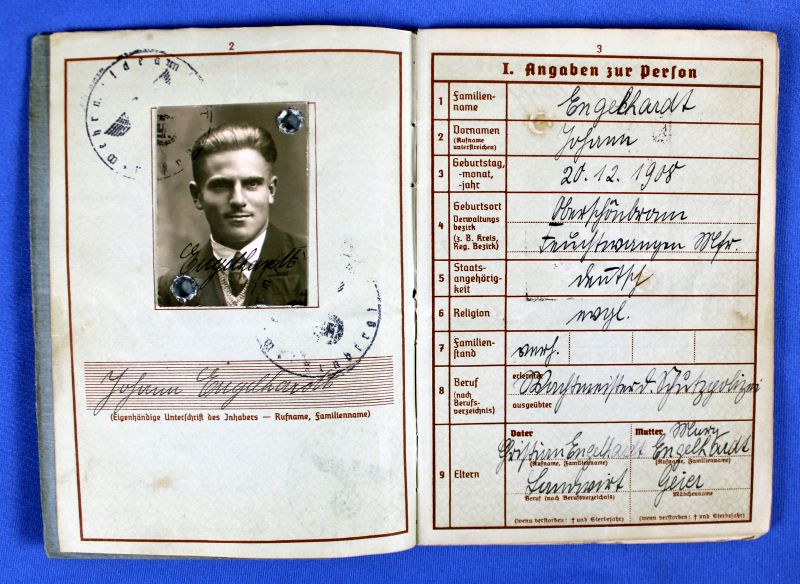 2
Engelhardt
Johann Engelhardt
(Eigenhändige Unterschrift des Inhabers — Rufname, Familienname)
3
I. Angaben zur Person
1 Familien-
name
Engelhardt
2 Vornamen
(Rufname
unterstreichen)
Johann
3 Geburtstag,
-monat,
-jahr
20.12.1908
4 Geburtsort
Verwaltungs
bezirk
(z. B. Kreis,
Reg. Bezirk)
Feuchtwangen Mfr.
5 Staats-
angehörig-
keit
deutsch
6 Religion
evgl.
7 Familien-
stand
verh.
8 Beruf
(nach
Berufs-
verzeichnis)
erlernter
Wachtmeister d. Schutzpolizei
ausgeübter
9 Eltern
Vater
Christian Engelhardt
(Rufname, Familienname)
Landwirt
Beruf (nach Berufsverzeichnis)
(wenn verstorben: † und Sterbejahr)
Mutter
Engelhardt
(Rufname, Familienname)
Geier
Mädchenname
(wenn verstorben: † und Sterbejahr)